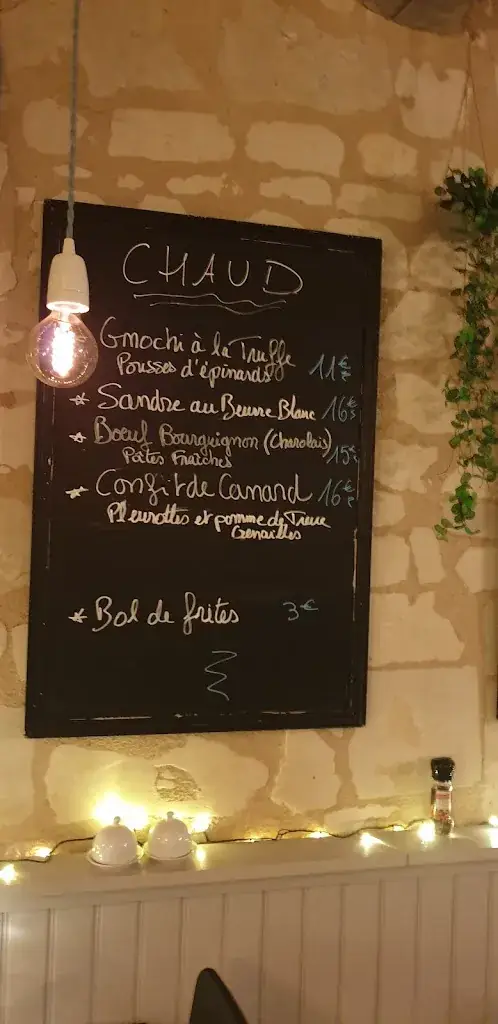 CHAUD
Gnocchi à la Truffe
Pousses d'épinards 11€
* Sandre au Beurre Blanc 16€
* Bœuf Bourguignon (Charolais)
Pâtes Fraîches 15€
* Confit de Canard 16€
Pleurottes et pomme de Terre
Grenailles
* Bol de frites 3€